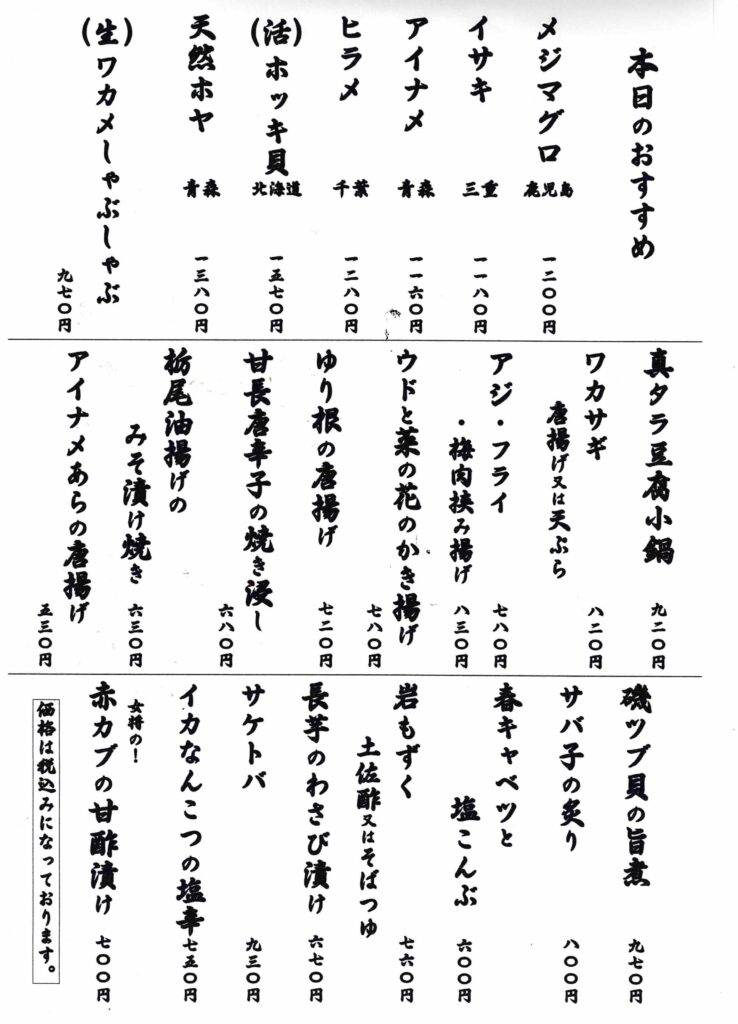 本日のおすすめ
メジマグロ 鹿児島 一二〇〇円
イサキ 三重 一一八〇円
アイナメ 青森 一一六〇円
ヒラメ 千葉 一二八〇円
(活)ホッキ貝 北海道 一五七〇円
天然ホヤ 青森 一三八〇円
(生)ワカメしゃぶしゃぶ
九七〇円
真タラ豆腐小鍋 九二〇円
ワカサギ
唐揚げ又は天ぷら
八二〇円
アジ・フライ 七八〇円
・梅肉挟み揚げ 八三〇円
ウドと菜の花のかき揚げ
七八〇円
ゆり根の唐揚げ 七二〇円
甘長唐辛子の焼き浸し
六八〇円
栃尾油揚げの
みそ漬け焼き 六三〇円
アイナメあらの唐揚げ
五三〇円
磯ツブ貝の旨煮 九七〇円
サバ子の炙り 八〇〇円
春キャベツと
塩こんぶ 六〇〇円
岩もずく 七六〇円
土佐酢又はそばつゆ
長芋のわさび漬け 六七〇円
サケトバ 九三〇円
イカなんこつの塩辛 七五〇円
女将の!
赤カブの甘酢漬け 七〇〇円
価格は税込みになっております。